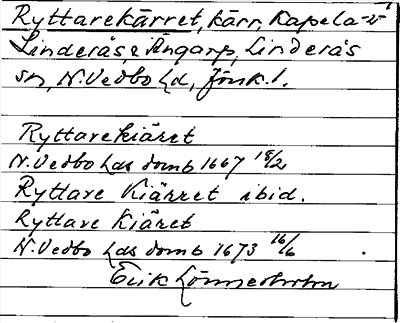 Ryttarekärret, kärr, Kapela-
Linderås, & Ängarp, Linderås
sn, N. Vedbo hd, Jönk. l.
Ryttarekiäret
N. Vedbo hds domb 1667 18/2
Ryttare Kiärret ibid.
Ryttare Kiäret
N. Vedbo hds domb 1673 16/6
Erik Lönnerholm